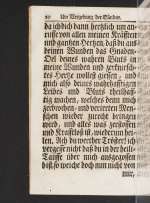 20 Um Vergebung der Sünden.
da ich dich dann hertzlich um an-
ruffe von allen meinen Kräfften
und gantzen Hertzen, daß du aus
deinen Wunden das Gnaden-
Oel deines wahren Bluts in
meine Wunden und zerknirsch-
tes Hertze wollest giessen, und
mich also deines wahrhafftigen
Leibes und Bluts theilhaff-
tig machen, welches denn mich
zerbrochen, und verirrten Men-
schen wieder zurecht bringen
wird, und alles was zerstossen
und Krafftloß ist, wiederum hei-
len. Ach du werther Tröster! ich
vergesse nicht daß du in der heil.
Tauffe über mich ausgegossen
bist, so weiche doch nun nicht von
mir,